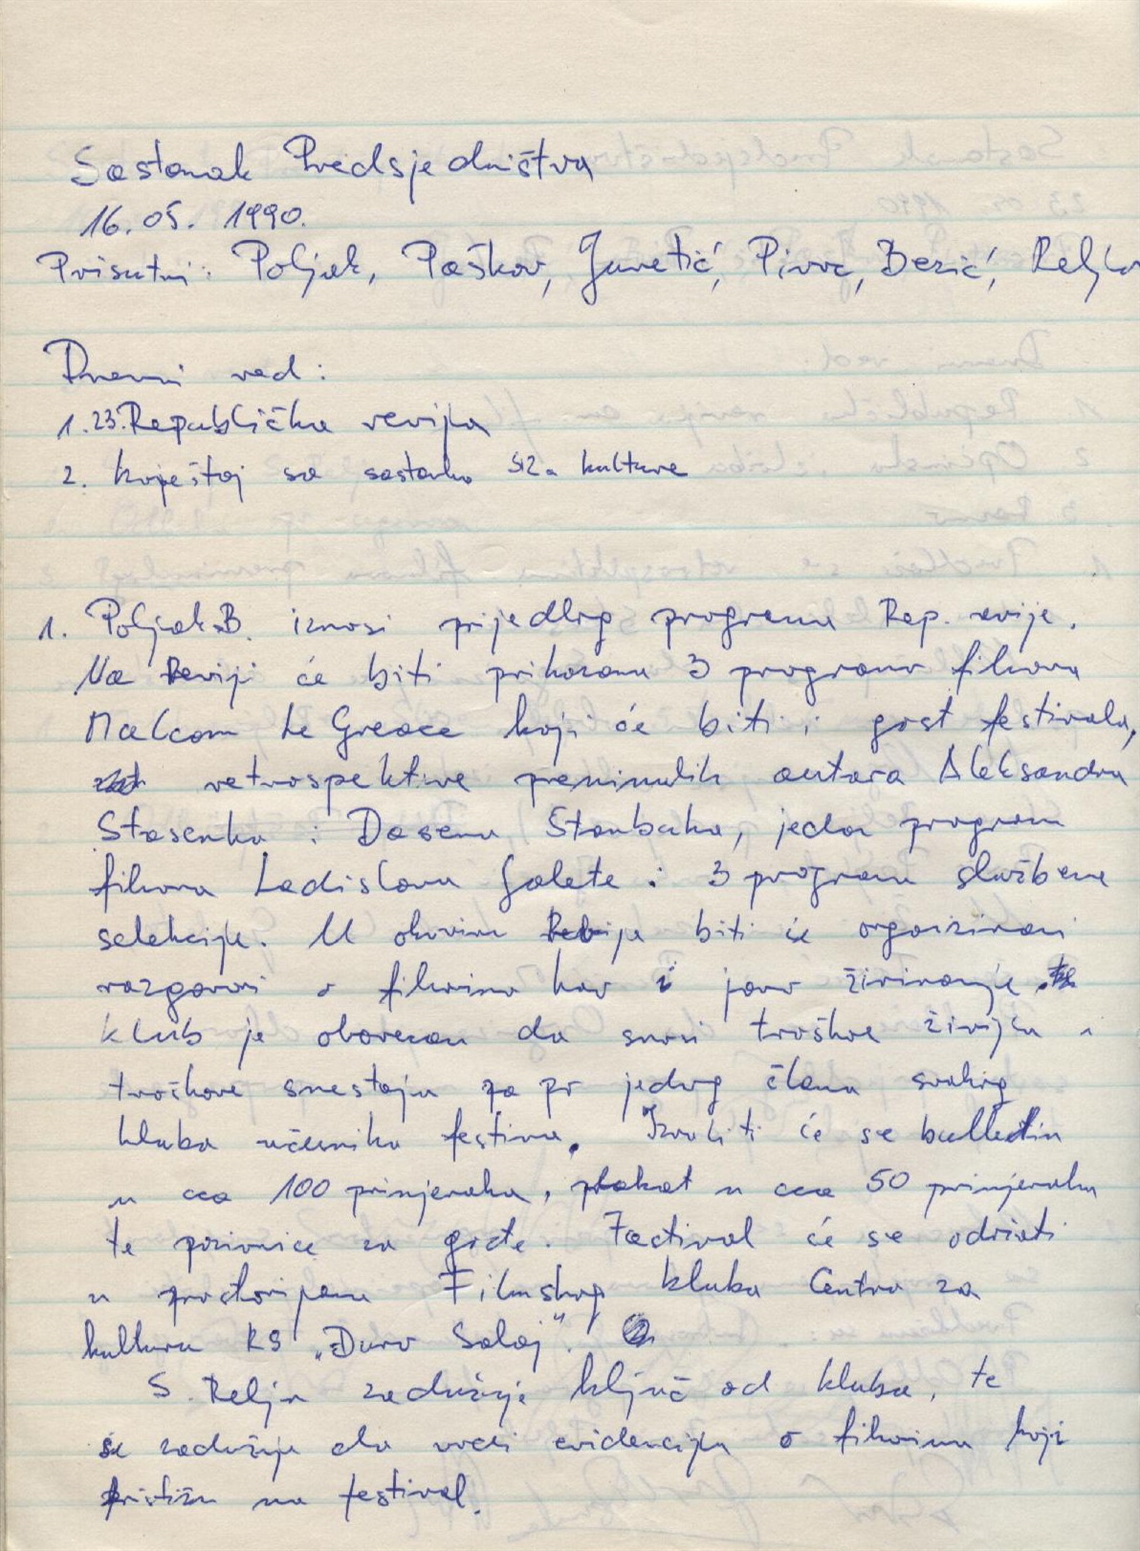 Sastanak Predsjedništva
16.05. 1990.
Prisutni: Poljak, Paškov, Juretić, Pivac, Bezić, Relja
Dnevni red:
1. 23. Republička revija
2. Izvještaj sa sastanka SIZ-a kulture
1. Poljak B. iznosi prijedlog programa Rep. revije.
Na Reviji će biti prikazana 3 programa filmova
Malcom Le Greace koji će biti i gost festivala,
retrospektive preminulih autora Aleksandra
Stasenka i Dasena Štambuka, jedan program
filmova Ladislava Galete i 3 programa službene
selekcije. U okviru Revije biti će organizirani
razgovori o filmovima kao i javno žiriranje.
Klub je obavezan da snosi troškove žirija i
troškove smještaja za po jednog člana svakog
kluba učesnika festivala. Izraditi će se bulletin
u cca 100 primjeraka, plakat u cca 50 primjeraka
te pozivnice za goste. Festival će se održati
u prostorijama Filmskog kluba Centra za
kulturu KS „Đuro Salaj".
S. Relja zadužuje ključ od kluba, te
se zadužuje da vodi evidenciju o filmovima koji
pristižu na festival.